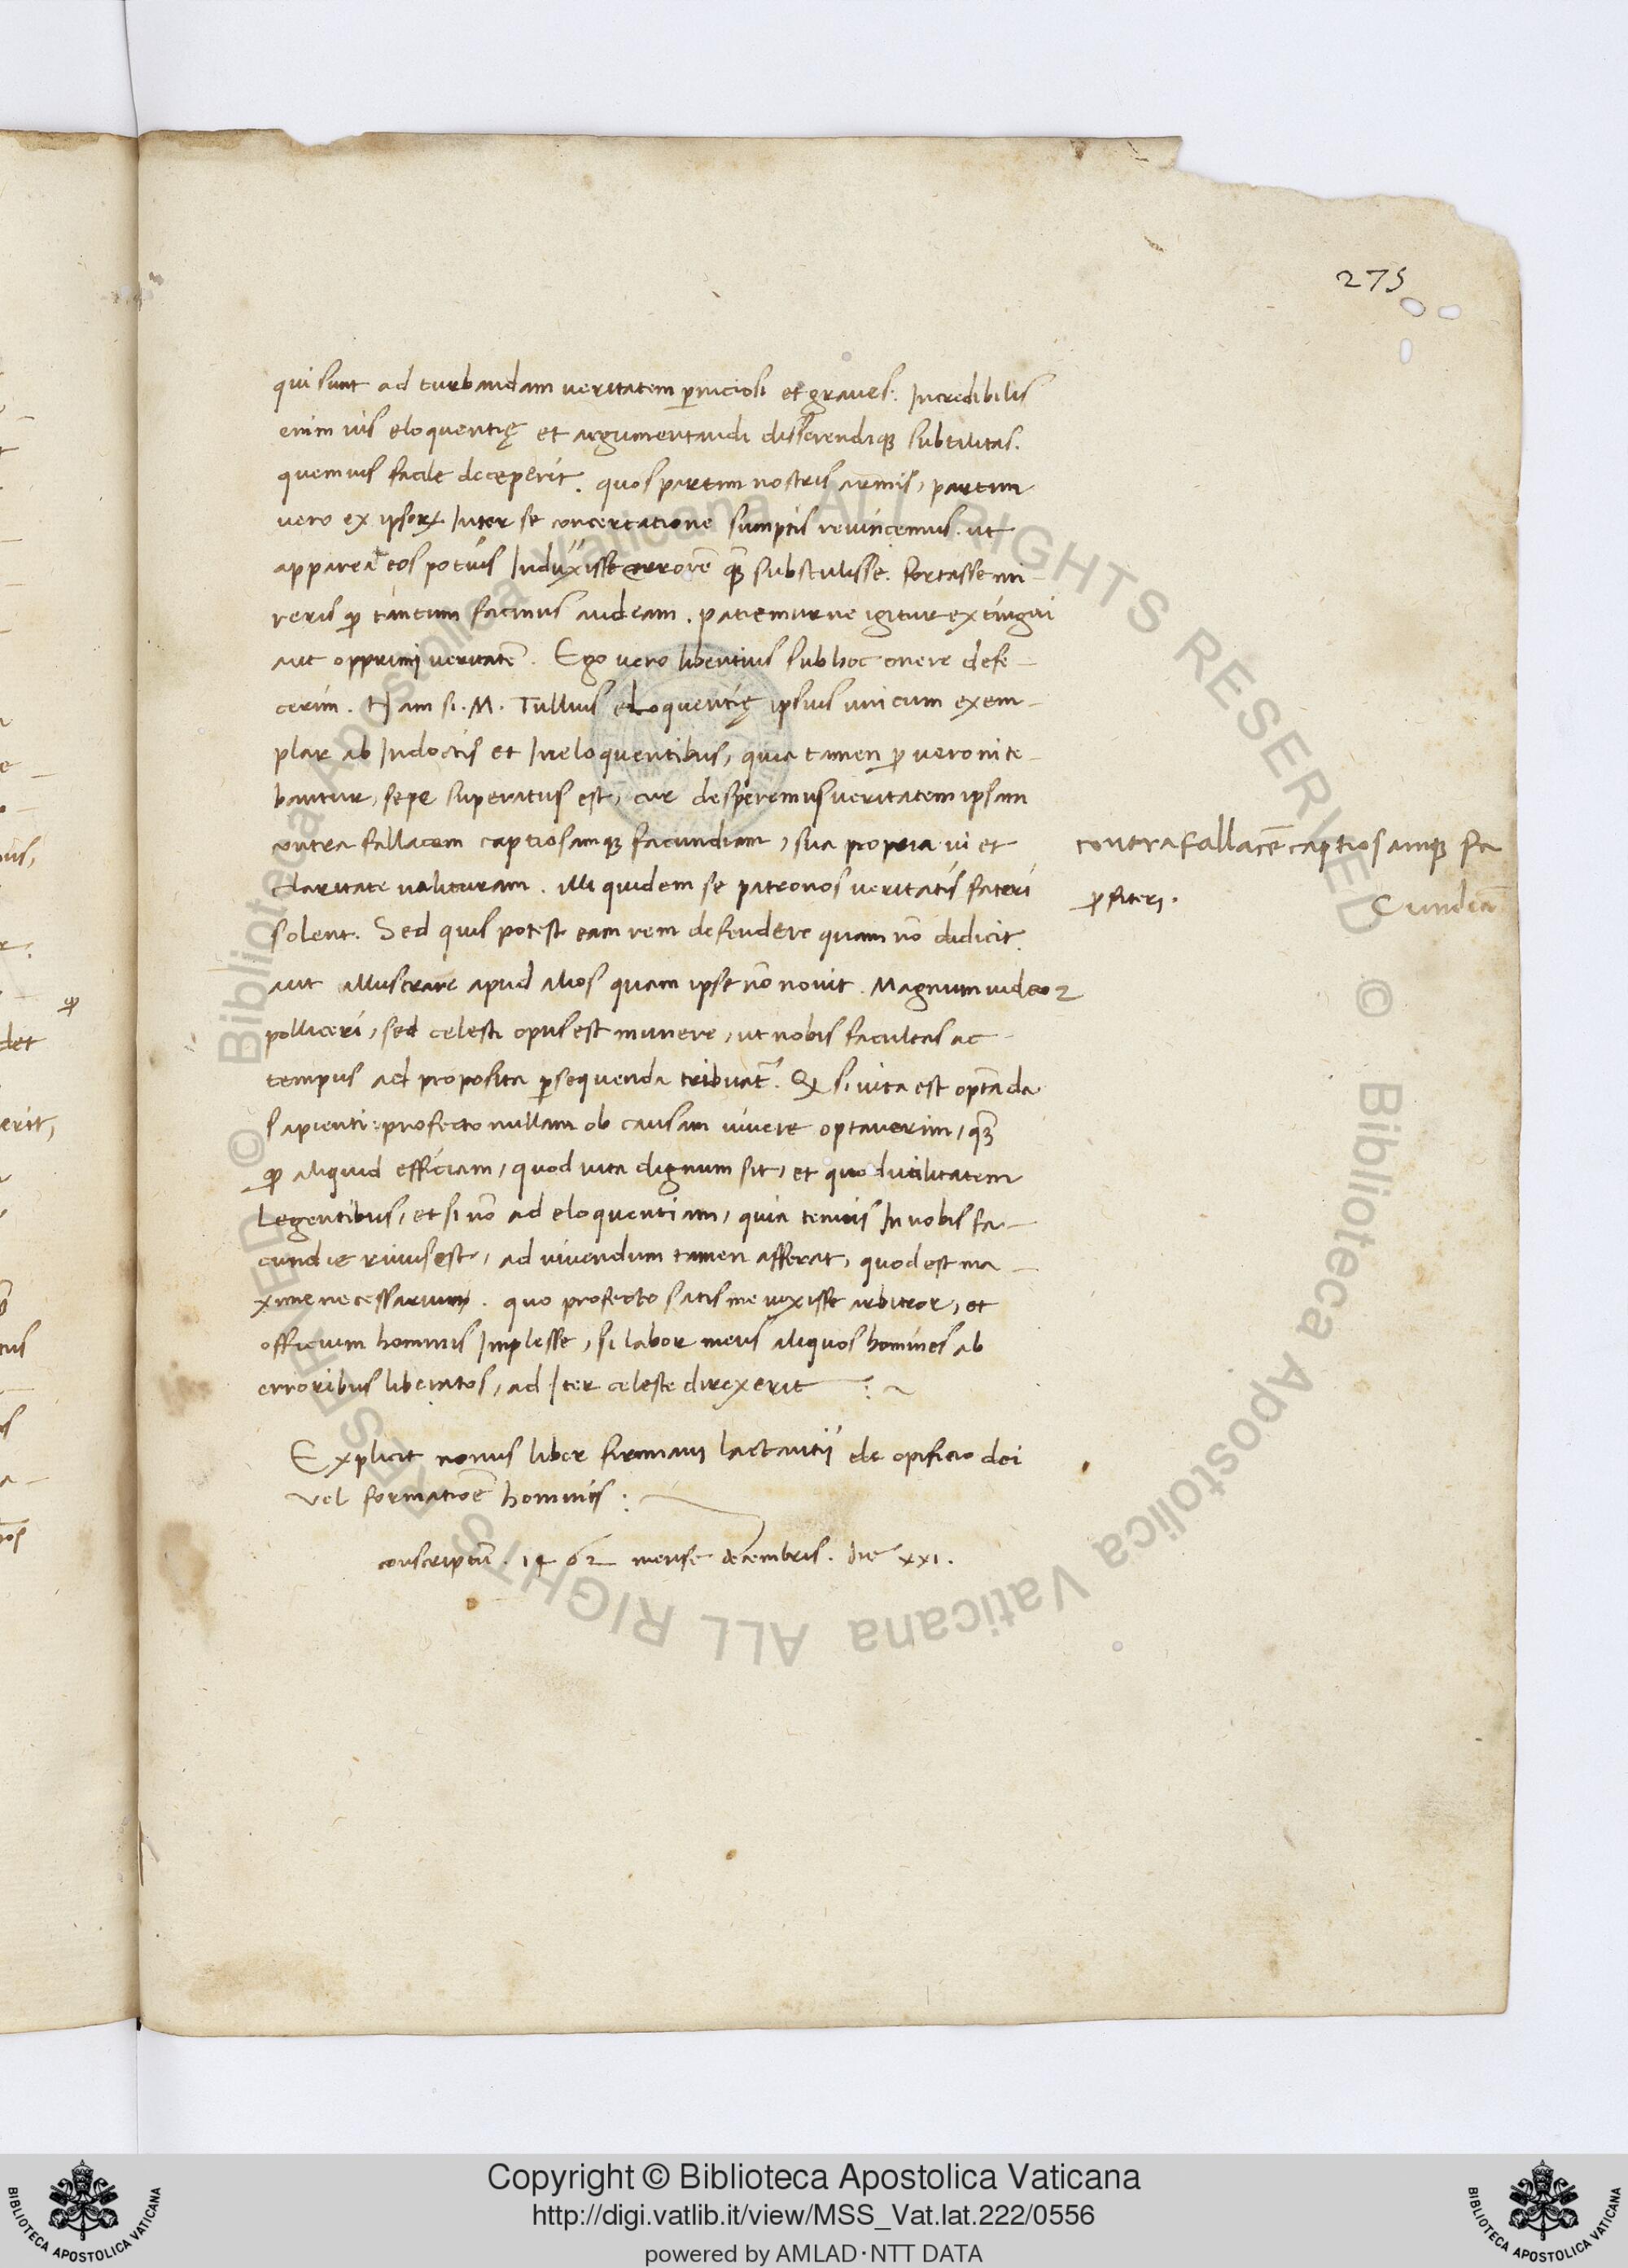 275
qui sunt ad turbandam veritatem ꝑniciosi et graves. Incredibilis
enim vis eloquentię et argumentandi disserendiqꝫ subtilitas.
quemvis facile deceperit. quos partim nostris armis, partim
vero ex ipsoꝝ Inter se concertatione sumptis revincemus. ut
appareat eos potius Induxisse errorē quā substulisse. fortasse mi-
reris ꝙ tantum facinus audeam. patiemurne igitur extingui
aut opprimi veritatē. Ego vero libentius sub hoc onere defe-
cerim. Nam si. M. Tullius eloquentię ipsius unicum exem-
plar ab Indoctis et Ineloquentibus, quia tamen ꝓ vero nite-
bantur, sepe superatus est, cur desperemus veritatem ipsam
contra fallacem captiosamqꝫ facundiam, sua propria vi et
claritate valituram. illi quidem se patronos veritatis fateri
solent. Sed quis potest eam rem defendere quam nō didicit
aut illustrare apud alios quam ipse nō novit. Magnum videor
polliceri, sed celesti opus est munere, ut nobis facultas ac
tempus ad proposita ꝑsequenda tribuat̄. Qꝫ si vita est optāda
sapienti: profecto nullam ob causam vivere optaverim, quā
ꝙ aliquid efficiam, quod vita dignum sit, et quod utilitatem
Legentibus, et si nō ad eloquentiam, quia tenuis In nobis fa-
cundie rivus est, ad vivendum tamen afferat, quod est ma-
xime necessarium. quo profecto satis me vixisse arbitror, et
officium hominis Implesse, si labor meus aliquos homines ab
erroribus liberatos, ad Iter celeste direxerit
contra fallacē captiosamqꝫ fa
cundiā
ꝓfiteri.
Explicit nonus liber firmiani lactantii de opificio dei
vel formatiōe hominis:
conscriptū. 1462 mense decembris. die xxi.
© Biblioteca Apostolica Vaticana ALL RIGHTS RESERVED © Biblioteca Apostolica Vaticana ALL RIGHTS RESERVED
Copyright © Biblioteca Apostolica Vaticana
http://digi.vatlib.it/view/MSS_Vat.lat.222/0556
powered by AMLAD·NTT DATA
BIBLIOTECA APOSTOLICA VATICANA
BIBLIOTECA APOSTOLICA VATICANA